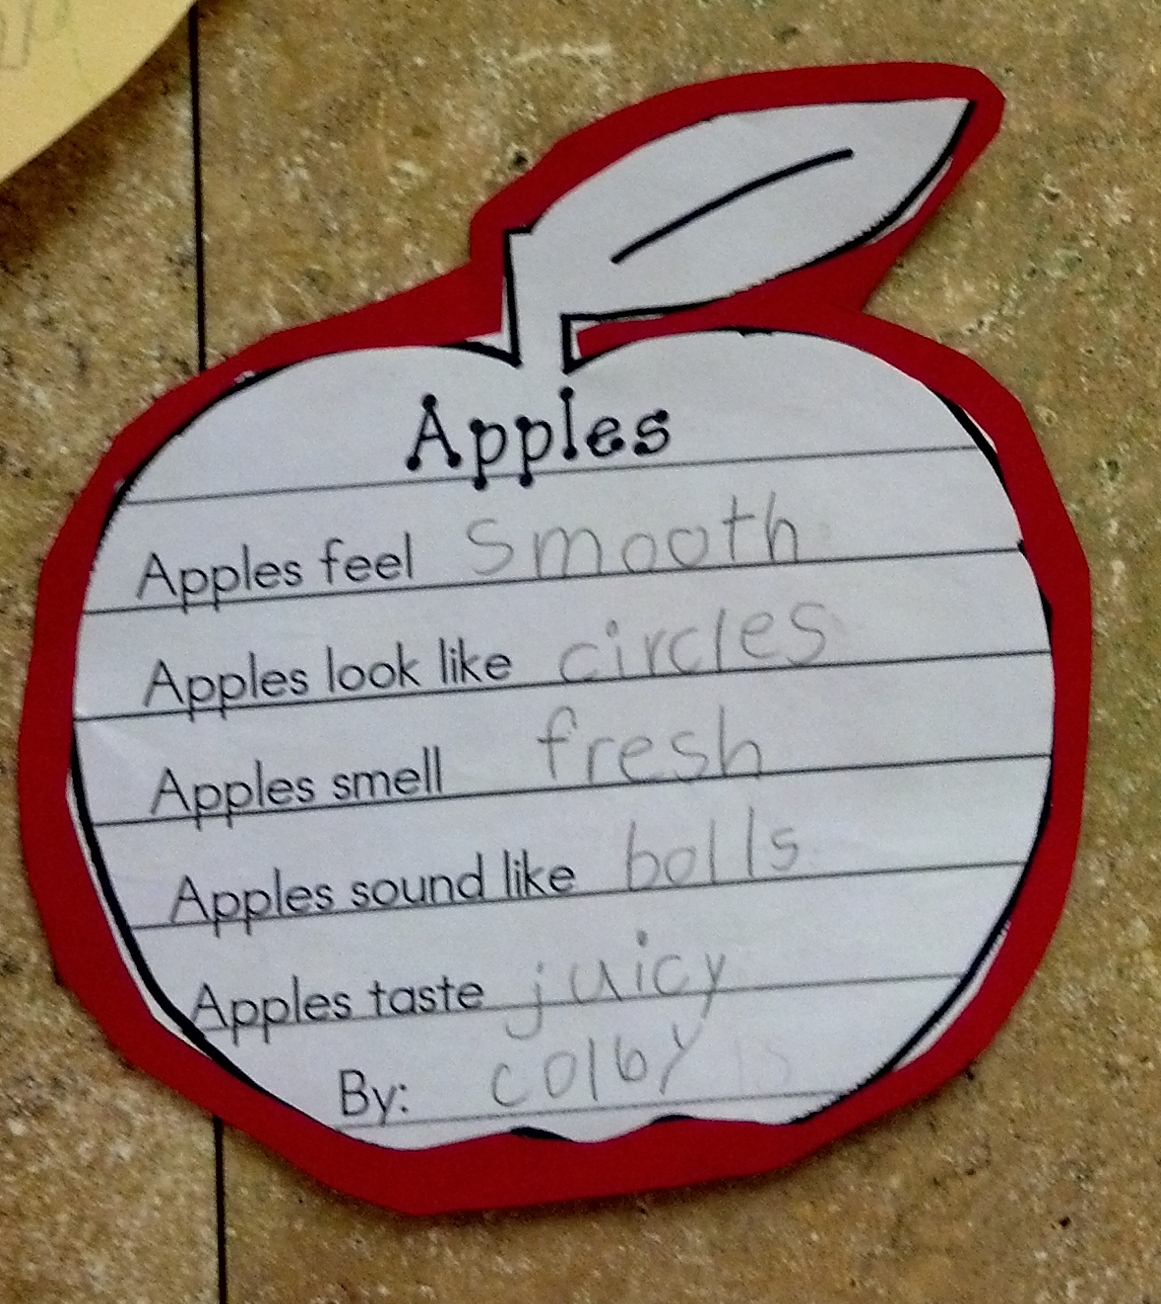 Apples
Apples feel smooth
Apples look like circles
Apples smell fresh
Apples sound like bolls
Apples taste juicy
By: colby